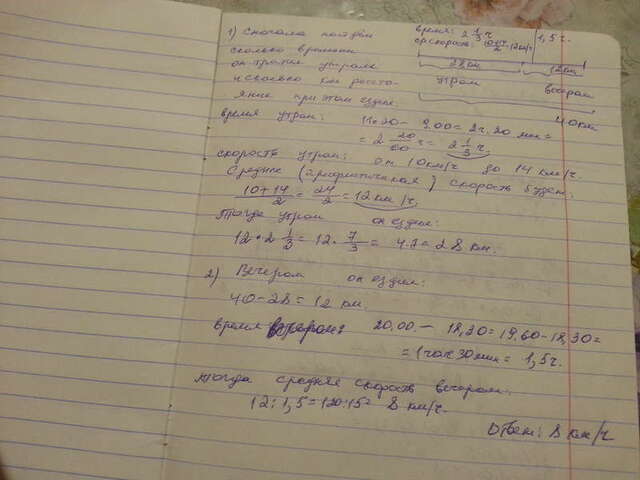 1) Сначала найдём
сколько времени
он тратил утром
и сколько км рассто-
яние при этом ездил.
время: 2 1/3 ч
1,5 ч.
ср.скорость: 10+14/2 = 12 км/ч
28 км
12 км
утром
вечером
40 км
время утром: 11.20 - 9.00 = 2ч. 20 мин =
= 2 20/60 ч = 2 1/3 ч.
скорость утром: от 10 км/ч. до 14 км/ч.
Средняя (арифметическая) скорость будет:
10+14/2 = 24/2 = 12 км/ч.
тогда утром он ездил:
12 • 2 1/3 = 12 • 7/3 = 4.7 = 28 км.
2) Вечером он ездил:
40 - 28 = 12 км.
время вечером: 20.00 - 18,30 = 19.60 - 18,30 =
= 1 час 30 мин = 1,5 ч.
тогда средняя скорость вечером:
12 : 1,5 = 120 : 15 = 8 км/ч.
Ответ: 8 км/ч